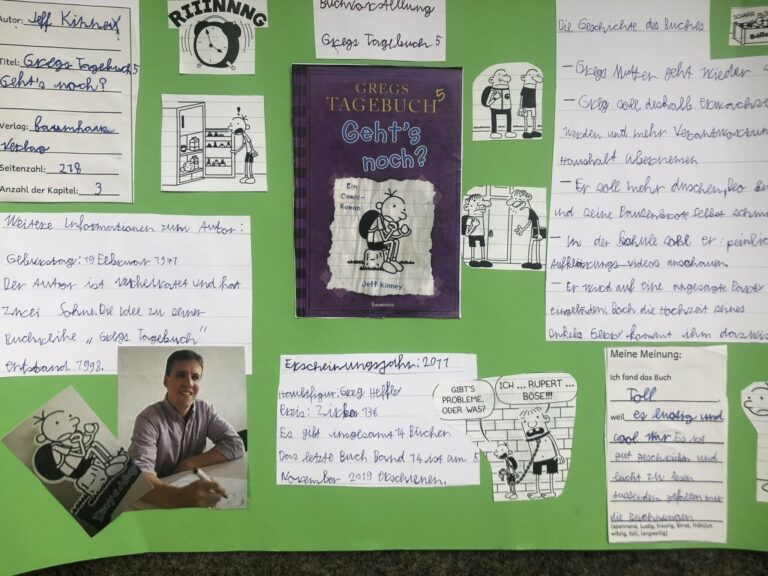 Autor: Jeff Kinney
Titel: Gregs Tagebuch 5
Geht's noch?
Verlag: Baumhaus
Verlag
Seitenzahl: 218
Anzahl der Kapitel: 3
RIIINNNG
Buchvorstellung
Gregs Tagebuch 5
GREGS
TAGEBUCH 5
Geht's
noch?
Ein
Comic-
Roman
Jeff Kinney
BAUMHAUS
Die Geschichte des Buches
- Gregs Mutter geht wieder
- Greg soll deshalb erwachse
werden und mehr Verantwortung
Haushalt übernemen
- Er soll mehr duschen, Deo
und seine Pausenbrote selbst schmi
- In der Schule soll er peinlich
Aufklärungs-Videos anschauen.
- Er wird auf eine angesagte Party
eingeladen. Doch die Hochzeit seines
onkels Gary kommt ihm dazwis
Weitere Informationen zum Autor:
Geburtstag: 19 Februar 1971
Der Autor ist verheiratet und hat
zwei Söhne. Die Idee zu seiner
Buchreihe „Gregs Tagebuch"
entstand 1998.
Erscheinungsjahr: 2011
Hauptfigur: Greg Heffley
Preis: Zirka 13€
Es gibt insgesamt 14 Bücher.
Das letzte Buch Band 14 ist am 5
November 2019 erschienen.
GIBT'S
PROBLEME,
ODER WAS?
ICH ... RUPERT ...
BÖSE!!!
Meine Meinung:
Ich fand das Buch
Toll
weil es lustig und
cool war. Es ist
gut geschrieben und
leicht zu lesen
Ausserdem gefallen mir
die Zeichnungen
(spannend, lustig, traurig, ernst, fröhlich
witzig, toll, langweilig)